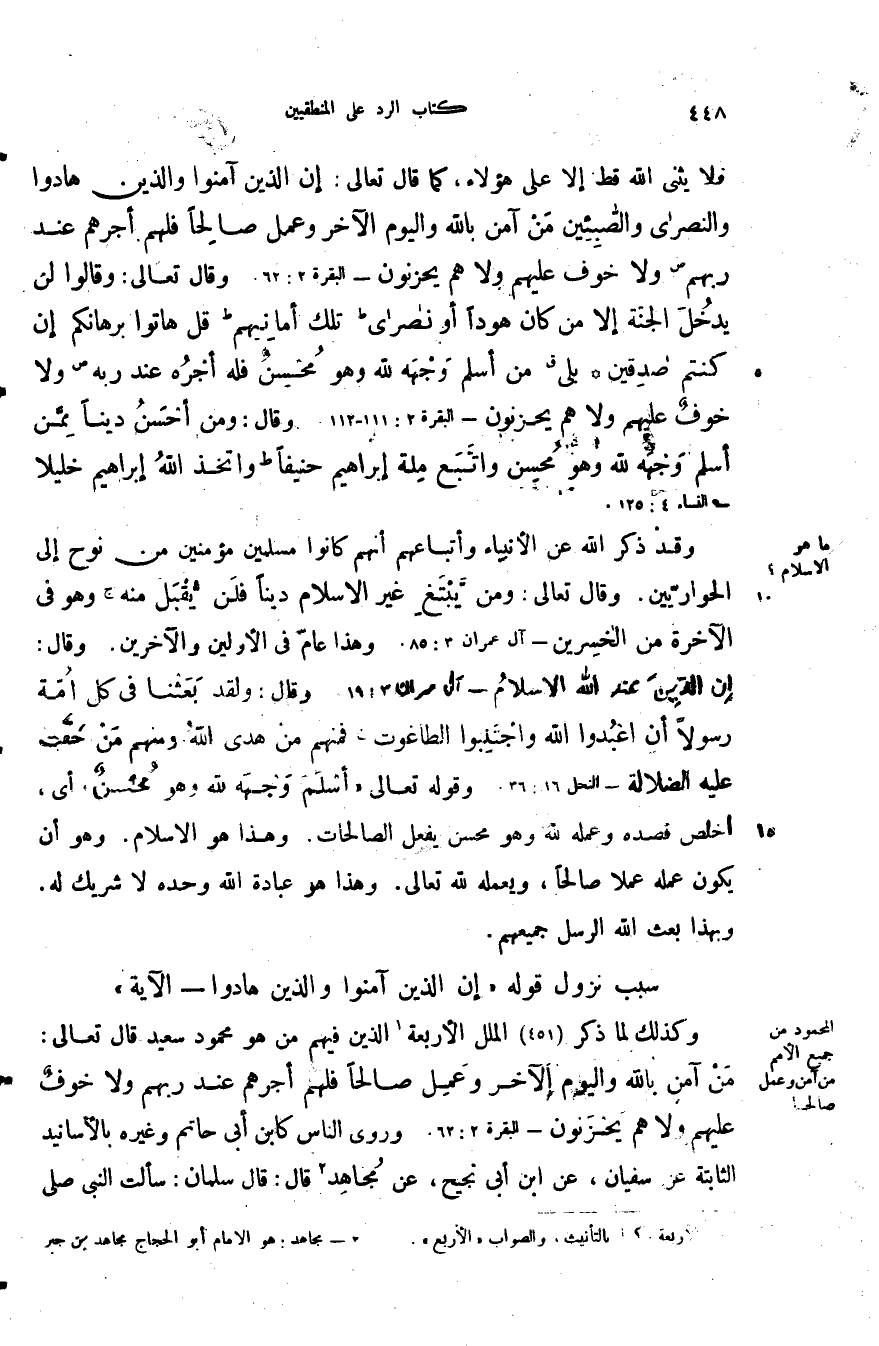 ٤٤٨
كتاب الرد على المنطقيين
فلا يثنى الله قط إلا على هؤلاء، كما قال تعالى: إن الذين آمنوا والذين هادوا
والنصرٰى والصّٰبِئِين مَنْ آمن بالله واليوم الآخر وعمل صالِحاً فلهم أجرهم عند
ربهم ص ولا خوف عليهم ولا هم يحزنون – البقرة ٢: ٦٢. وقال تعالى: وقالوا لن
يدخُلَ الجنّة إلا من كان هوداً أو نصٰرٰى ط تلك أمانيهم ط قل هاتوا برهانكم إن
كنتم صٰدقين ٥ بلى ق من أسلم وَجْهَه لله وهو مُحْسِنٌ فله أجرُه عند ربه ص ولا
٥
خوفٌ عليهم ولا هم يحزنون – البقرة ٢: ١١١-١١٢. وقال: ومن أحْسَنُ ديناً مِمَّن
أسلم وَجْهَه لله وهو مُحْسِن واتَّبَع مِلة إبراهيم حنيفاً ط واتخذ اللهُ إبراهيم خليلا
– النساء ٤: ١٢٥.
وقد ذكر الله عن الأنبياء وأتباعهم أنهم كانوا مسلمين مؤمنين من نوح إلى
ما هو
الاسلام ؟
الحواريّين. وقال تعالى: ومن يَّبْتَغِ غير الاسلام ديناً فلَن يُّقْبَلَ منه ج وهو فى
١٠
الآخرة من الخٰسرين – آل عمران ٣: ٨٥. وهذا عامّ فى الأولين والآخرين. وقال:
إن الدِّينَ عند الله الاسلامُ – آل عمران ٣: ١٩. وقال: ولقد بَعَثْنا فى كل اُمّة
رسولاً أن اعْبُدوا الله واجْتَنِبوا الطاغوت ج فمنهم مَنْ هدى اللهُ ومنهم مَنْ حَقَّت
عليه الضلالة – النحل ١٦: ٣٦. وقوله تعالى «أسْلَمَ وَجْهَه لله وهو مُحْسنٌ» أى،
أخلص قصده وعمله لله وهو محسن يفعل الصالحات. وهذا هو الاسلام. وهو أن
١٥
يكون عمله عملا صالحاً، ويعمله لله تعالى. وهذا هو عبادة الله وحده لا شريك له.
وبهذا بعث الله الرسل جميعهم.
سبب نزول قوله «إن الذين آمنوا والذين هادوا – الآية»
وكذلك لما ذكر (٤٥١) الملل الأربعة١ الذين فيهم من هو محمود سعيد قال تعالى:
المحمود من
جميع الأمم
من آمن وعمل
صالحا
مَنْ آمن بالله واليوم الآخر وعَمِل صالحاً فلهم أجرهم عند ربهم ولا خوفٌ
عليهم ولا هم يَحْزَنون – البقرة ٢: ٦٢. وروى الناس كابن أبى حاتم وغيره بالأسانيد
الثابتة عن سفيان، عن ابن أبى نجيح، عن مُجاهِد٢ قال: قال سلمان: سألت النبى صلى
الأربعة بالتأنيث، والصواب «الأربع».
٢ – مجاهد: هو الامام أبو الحجاج مجاهد بن جبر